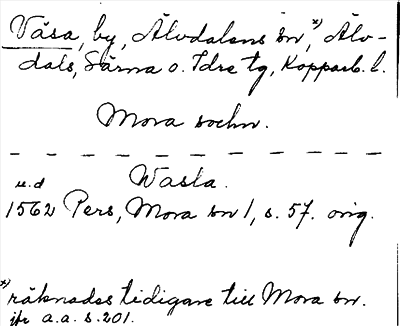 Våsa, by, Älvdalens sn,*) Älv-
dals, Särna o. Idre tg, Kopparb. l.
Mora sochn.
Wasla.
u.d
1562 Pers, Mora sn 1, s. 57. orig.
*) räknades tidigare till Mora sn.
jfr a.a. s. 201.